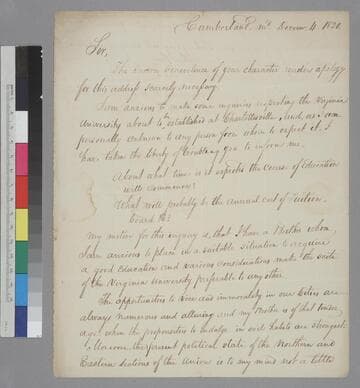 Cumberland Md. Decem 4. 1820.
Sir,
The known benevolence of your character renders apology
for this address scarcely necessary.
I am anxious to make some inquiries respecting the Virginia
University about to be established at Charlottesville and, as I am
personally unknown to any person from whom to expect it, I
have taken the liberty of troubling you to inform me,
About what time is it expected the Course of Education
will commence?
What will probably be the annual cost of Tuition,
board &c?
My motive for this enquiry is, that I have a Brother whom
I am anxious to place in a suitable situation to acquire
a good Education and various considerations make the scite
of the Virginia University preferable to any other.
The opportunities to vice and immorality in our Cities are
always numerous and alluring and my Brother is of that tender
age when the propensities to indulge in evil habits are strongest.
Moreover the present political state of the Northern and
Eastern sections of the Union is to my mind not a little